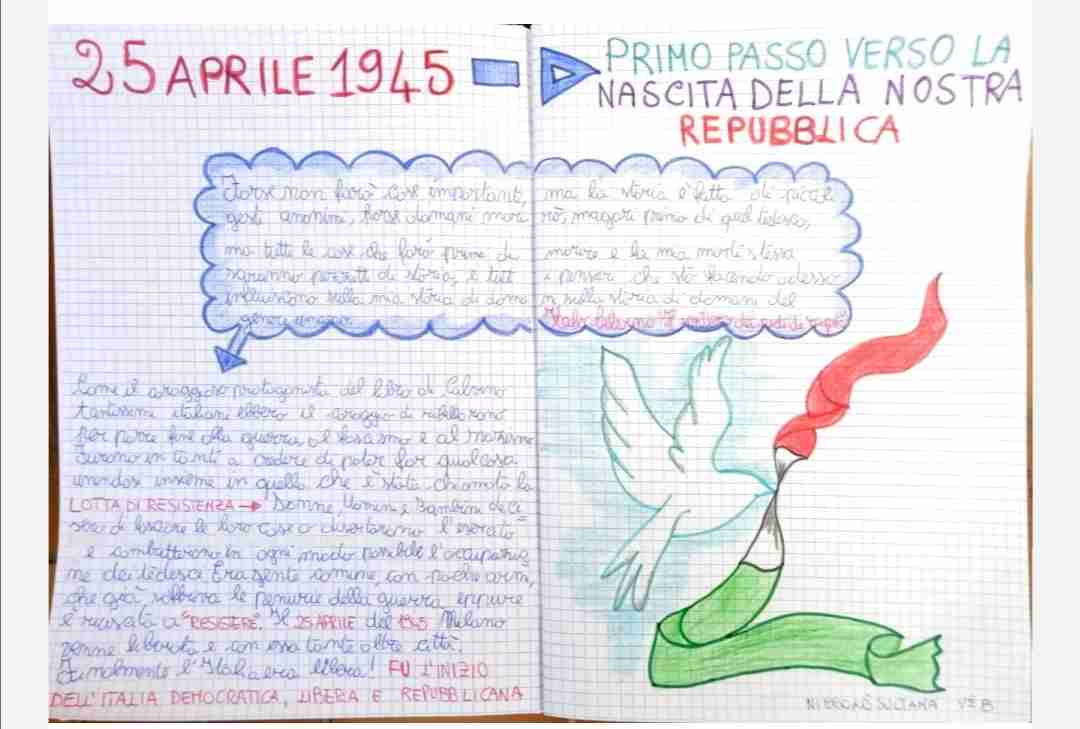 25 APRILE 1945
PRIMO PASSO VERSO LA
NASCITA DELLA NOSTRA
REPUBBLICA
Forse non farò cose importanti, ma la storia è fatta di piccoli
gesti anonimi, forse domani morirò, magari prima di quel tedesco,
ma tutte le cose che farò prima di morire e la mia morte stessa
saranno pezzetti di storia, e tutti i pensieri che sto facendo adesso
influiscono sulla mia storia di domani sulla storia di domani del
genere umano
Italo Calvino "Il sentiero dei nidi di ragno"
Come il coraggioso protagonista del libro di Calvino
tantissimi italiani ebbero il coraggio di ribellarsi
per porre fine alla guerra, al fascismo e al nazismo
Furono in tanti a credere di poter far qualcosa
unendosi insieme in quella che è stata chiamata la
LOTTA DI RESISTENZA → Donne, Uomini, e Bambini
di lasciare le loro case o disertarono l'esercito
e combatterono in ogni modo possibile l'occupazio
ne dei tedeschi. Era gente comune, con poche armi,
che già soffriva le penurie della guerra eppure
è riuscita a "RESISTERE". Il 25 APRILE del 1945 Milano
venne liberata e con essa tante altre città.
Finalmente l'Italia era libera! FU L'INIZIO
DELL'ITALIA DEMOCRATICA, LIBERIA E REPUBBLICANA
SULTANA